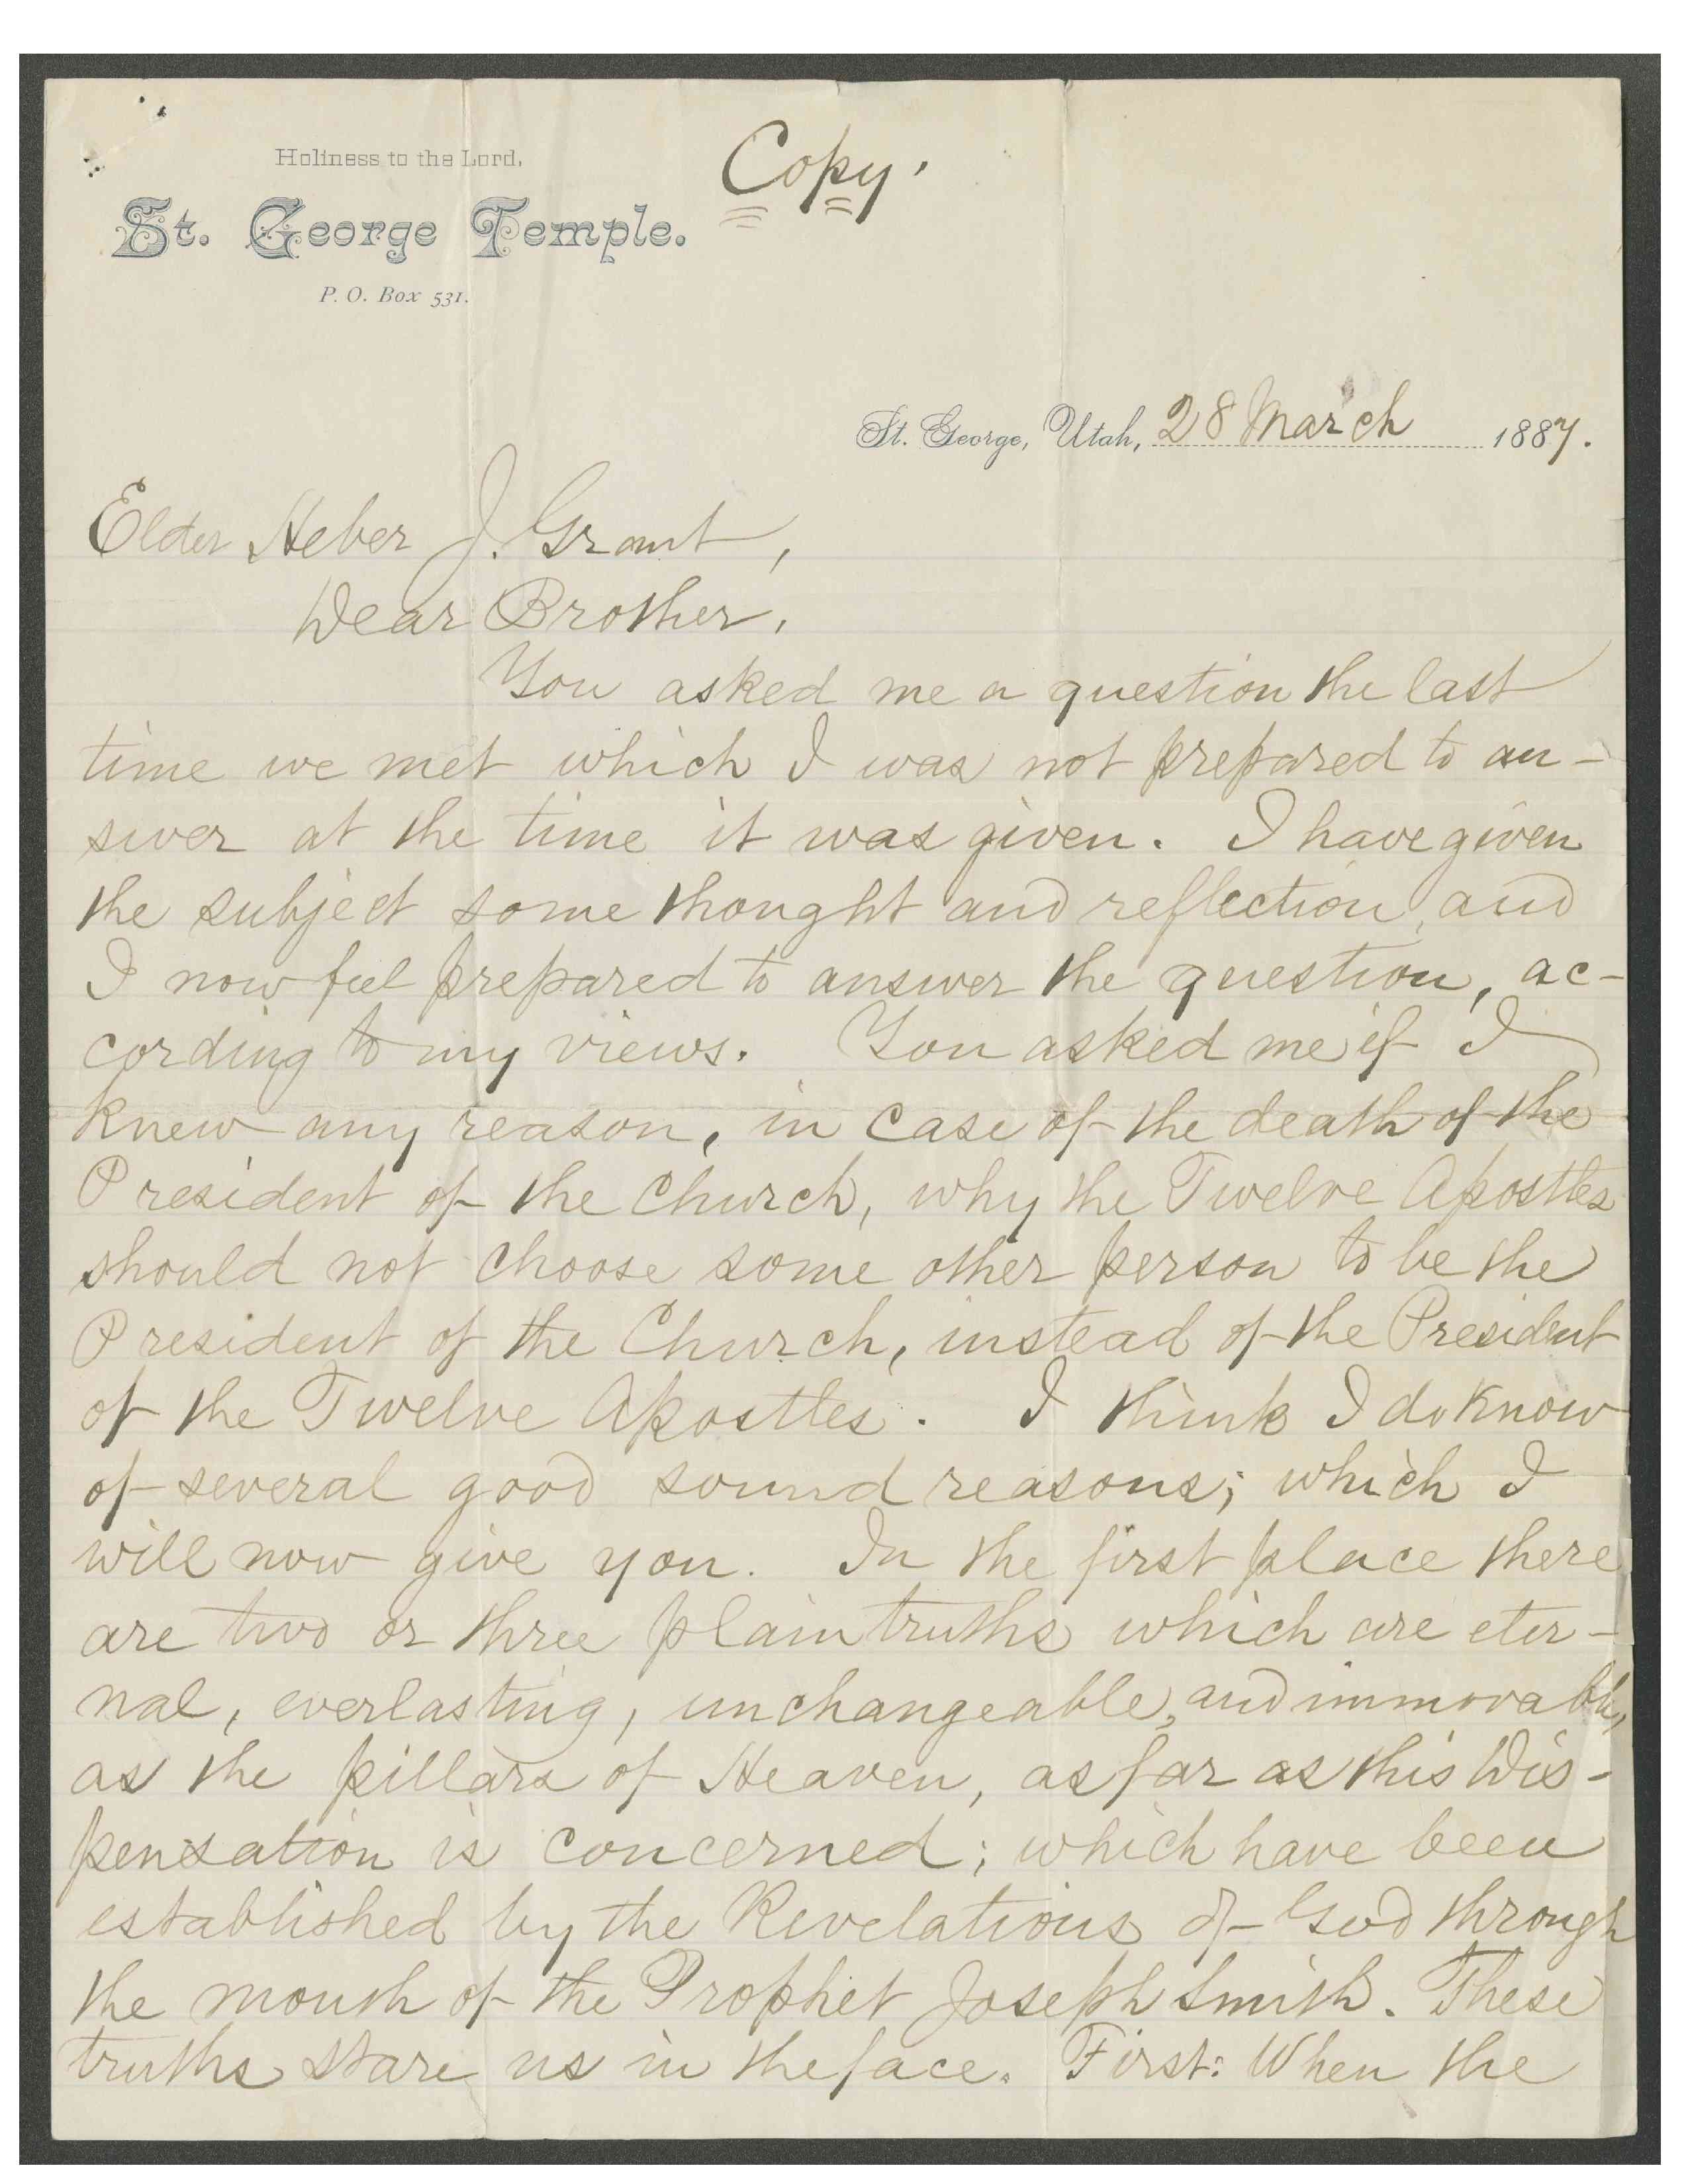 Holiness to the Lord,
Copy.
St. George Temple.
P. O. Box 531.
St. George, Utah, 28 March 1887.
Elder Heber J. Grant,
Dear Brother,
You asked me a question the last
time we met which I was not prepared to an-
swer at the time it was given. I have given
the subject some thought and reflection, and
I now feel prepared to answer the question, ac-
cording to my views. You asked me if I
knew any reason, in case of the death of the
President of the Church, why the Twelve Apostles
should not choose some other person to be the
President of the Church, instead of the President
of the Twelve Apostles. I think I do know
of several good sound reasons; which I
will now give you. In the first place there
are two or three plain truths which are eter-
nal, everlasting, unchangeable, and immovable,
as the pillars of Heaven, as far as this Dis-
pensation is concerned; which have been
established by the Revelations of God through
the mouth of the Prophet Joseph Smith. These
truths stare us in the face. First: When the